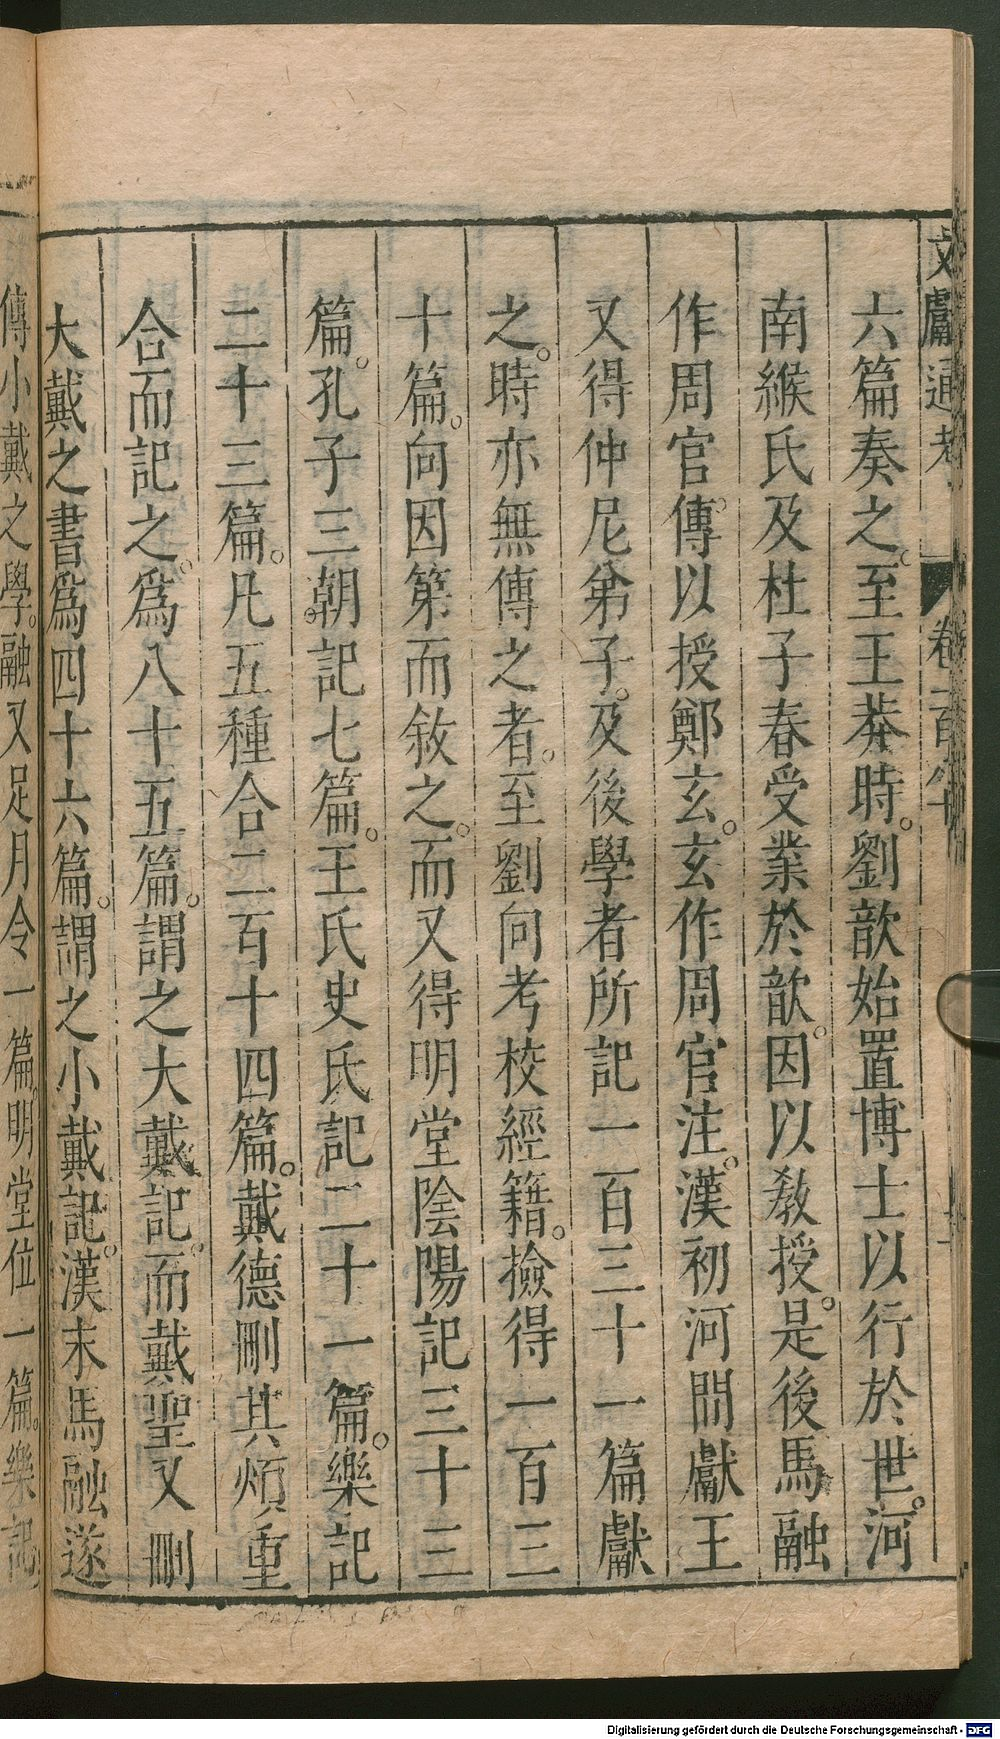 文獻通考 卷一百八十
六篇奏之。至王莽時。劉歆始置博士以行於世。河
南緱氏及杜子春受業於歆。因以教授。是後馬融
作周官傳。以授鄭玄。玄作周官注。漢初河間獻王
又得仲尼弟子。及後學者所記一百三十一篇獻
之。時亦無傳之者。至劉向考校經籍。撿得一百三
十篇。向因第而敘之。而又得明堂陰陽記三十三
篇。孔子三朝記七篇。王氏史氏記二十一篇。樂記
二十三篇。凡五種合二百十四篇。戴德刪其煩重
合而記之。為八十五篇。謂之大戴記。而戴聖又刪
大戴之書為四十六篇。謂之小戴記。漢末馬融遂
傳小戴之學。融又足月令一篇。明堂位一篇。樂記
Digitalisierung gefördert durch die Deutsche Forschungsgemeinschaft - DFG